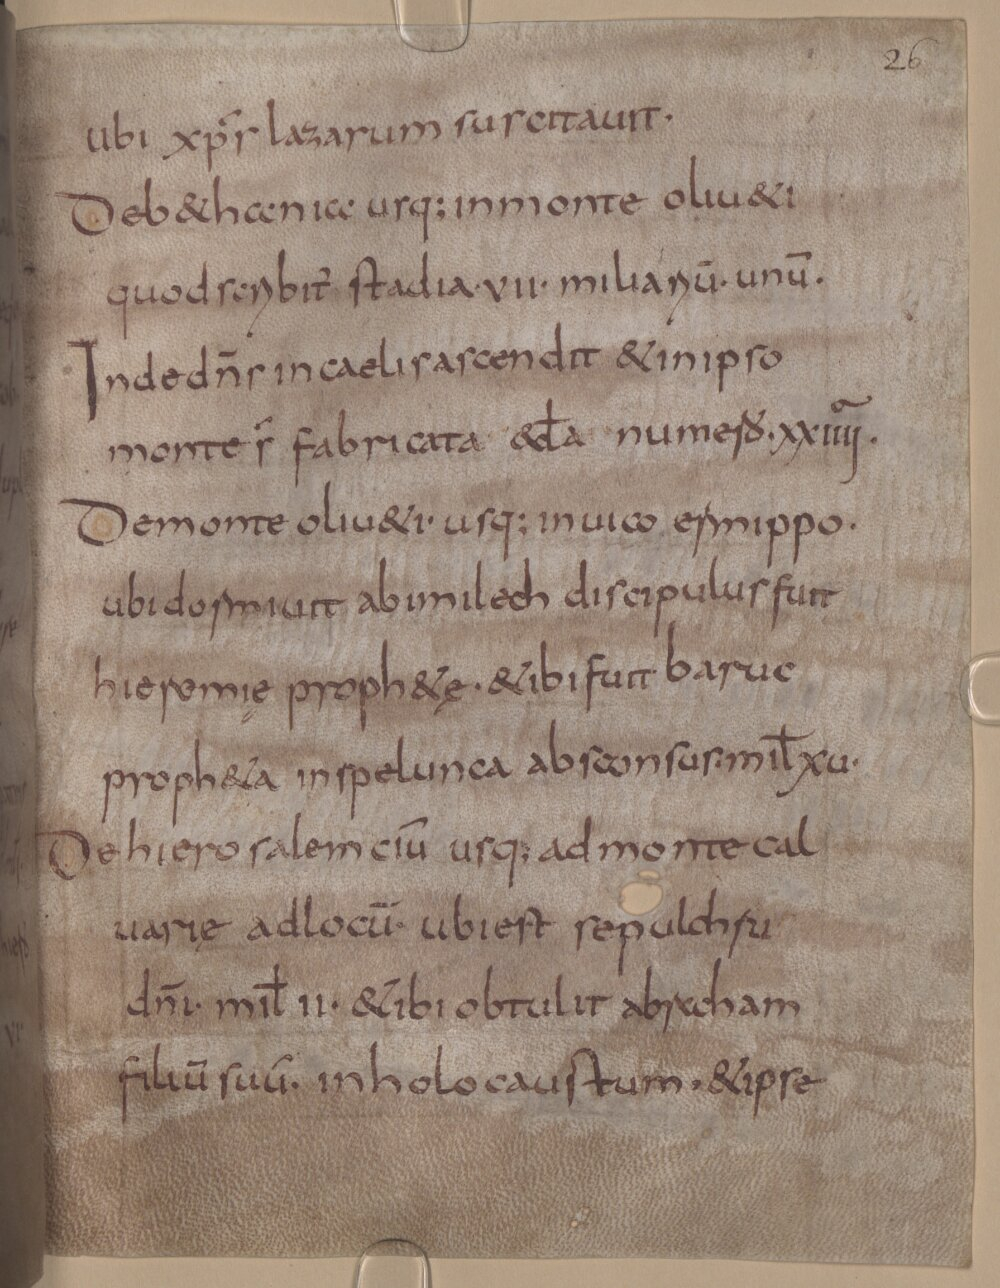 26
ubi xp̄s lazarum suscitauit·
Deb&hania usq; inmonte oliu&i
quodscrybit̄ stadia·vii· miliariū·unū·
Indedn̄s incaelisascendit &inipso
monte s̄ fabricata &cła numero·xxiiii·
Demonte oliu&i· usq; inuico ermippo·
ubidormiuit abimilech discipulusfuit
hieremię proph&ę·&ibifuit baruc
proph&a inspelunca absconsus·mił xu·
Dehierosalem ciū usq; admonte cal
uarię adlocū· ubiest sepulchru
dn̄i· mił ii· &ibi obtulit abracham
filiū suū· inholocaustum·&ipse